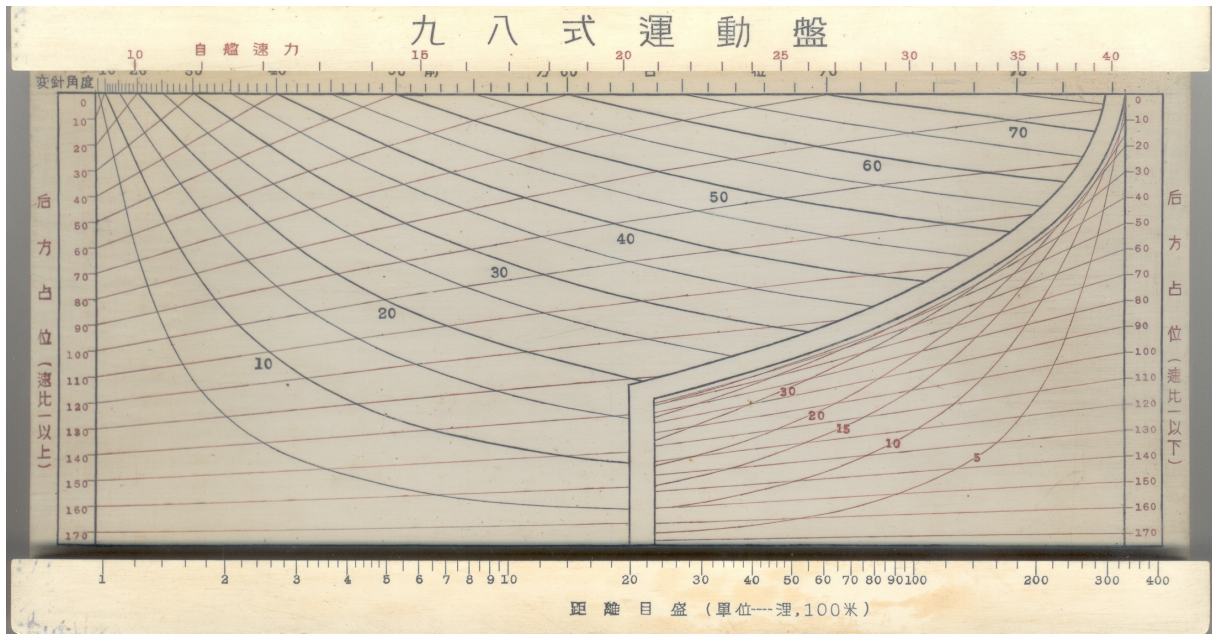 九八式運動盤
10 自艦速力 15 20 25 30 35 40
変針角度
0 10 20 30 40 50 60 70 80 90 100 110 120 130 140 150 160 170
后方占位(速比一以上)
10 20 30 40 50 60 70
30 20 15 10 5
0 10 20 30 40 50 60 70 80 90 100 110 120 130 140 150 160 170
后方占位(速比一以下)
1 2 3 4 5 6 7 8 9 10 20 30 40 50 60 70 80 90 100 200 300 400
距離目盛(單位----浬,100米)